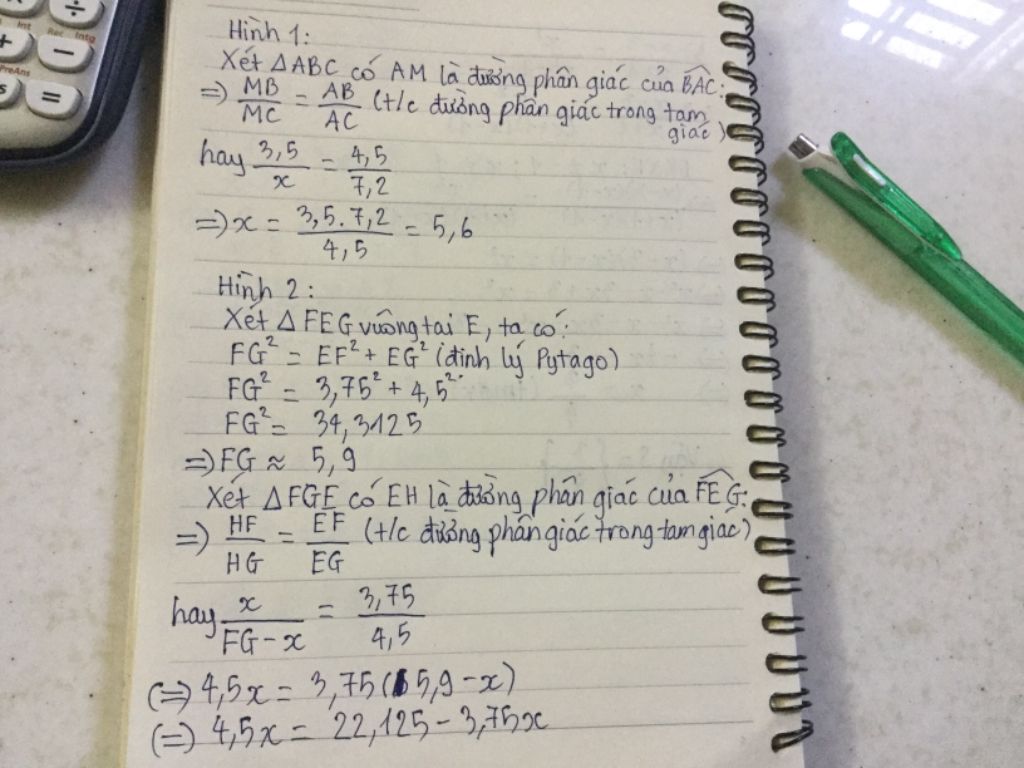 Hình 1:
Xét △ABC có AM là đường phân giác của BAC:
=> MB/MC = AB/AC (t/c đường phân giác trong tam
giác)
hay 3,5/x = 4,5/7,2
=> x = 3,5.7,2/4,5 = 5,6
Hình 2:
Xét △FEG vuông tại E, ta có:
FG² = EF² + EG² (định lý Pytago)
FG² = 3,75² + 4,5²
FG² = 34,3125
=> FG ≈ 5,9
Xét △FGE có EH là đường phân giác của FEG:
=> HF/HG = EF/EG (t/c đường phân giác trong tam giác)
hay x/FG-x = 3,75/4,5
(=) 4,5x = 3,75(5,9-x)
(=) 4,5x = 22,125 - 3,75x